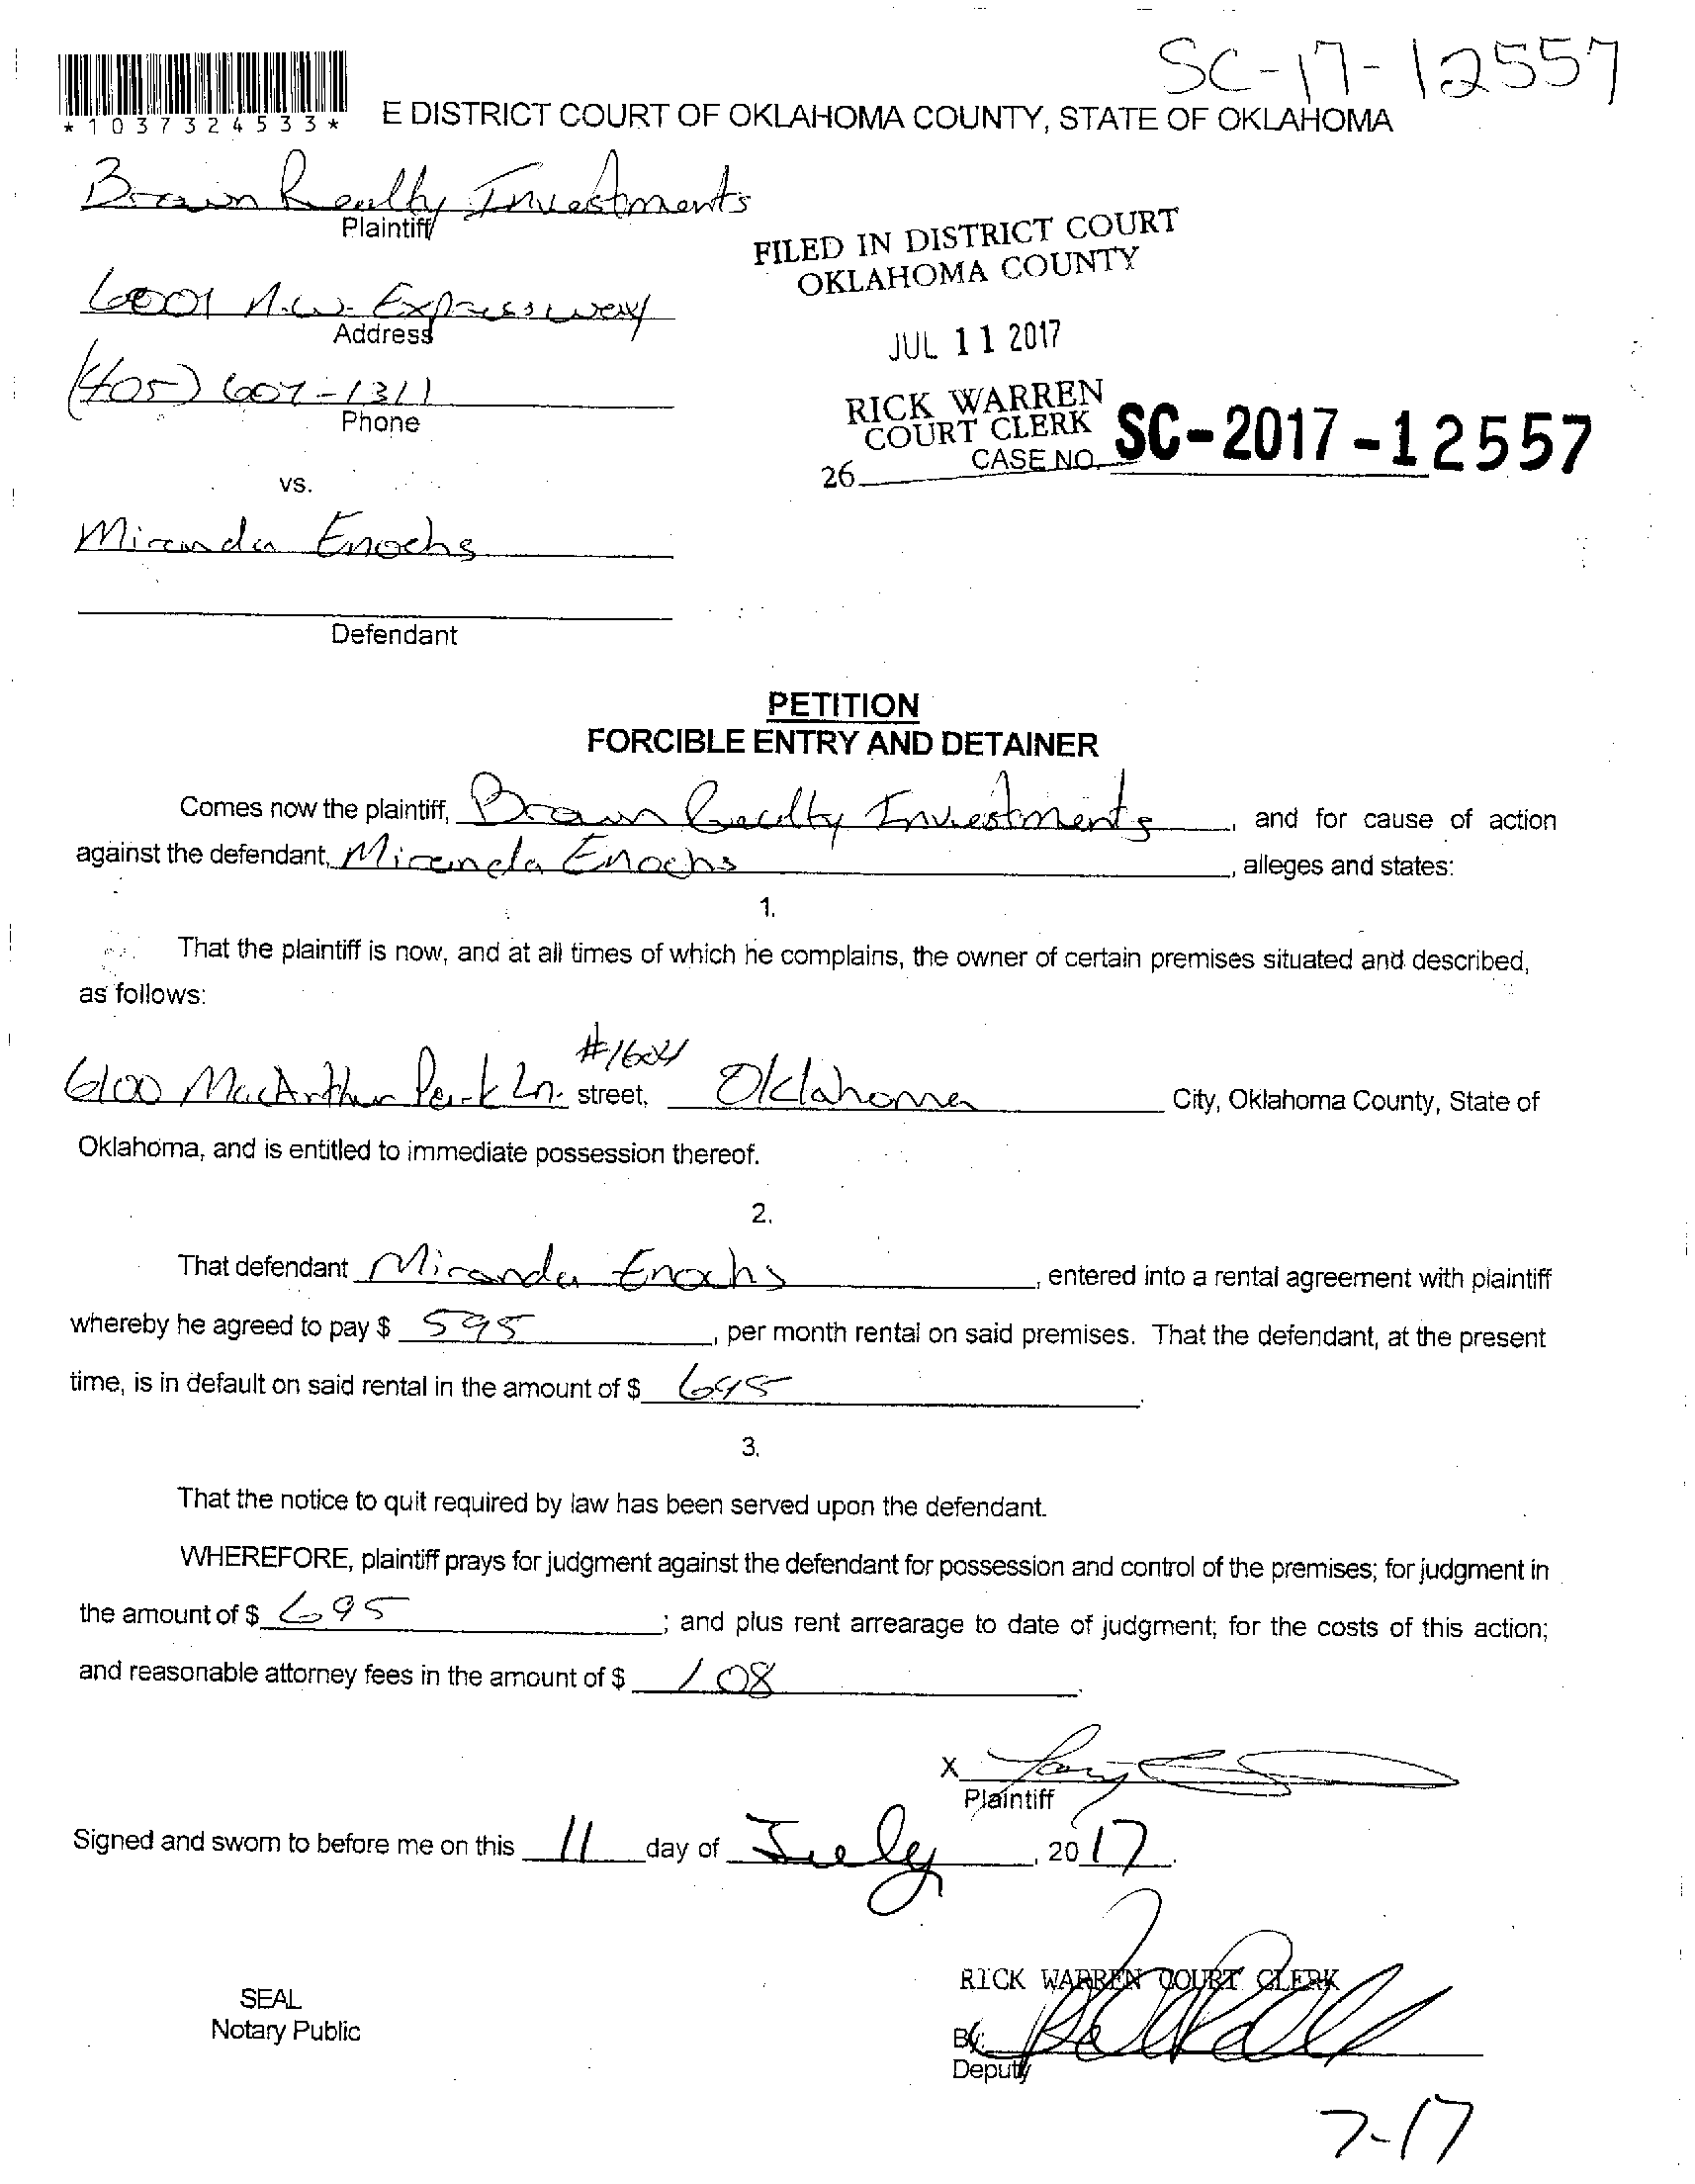 SC-17-12557
*1037324533*
E DISTRICT COURT OF OKLAHOMA COUNTY, STATE OF OKLAHOMA
Brawn Realty Investments
Plaintiff
FILED IN DISTRICT COURT
OKLAHOMA COUNTY
6001 N.W. Expressway
Address
JUL 11 2017
(405) 607-1311
Phone
RICK WARREN
COURT CLERK
26 CASE NO. SC-2017-12557
vs.
Miranda Enochs
Defendant
PETITION
FORCIBLE ENTRY AND DETAINER
Comes now the plaintiff, Brawn Realty Investments, and for cause of action
against the defendant, Miranda Enochs, alleges and states:
1.
That the plaintiff is now, and at all times of which he complains, the owner of certain premises situated and described,
as follows:
#1604
6100 MacArthur Park Ln. street, Oklahoma City, Oklahoma County, State of
Oklahoma, and is entitled to immediate possession thereof.
2.
That defendant Miranda Enochs, entered into a rental agreement with plaintiff
whereby he agreed to pay $ 595, per month rental on said premises. That the defendant, at the present
time, is in default on said rental in the amount of $ 695.
3.
That the notice to quit required by law has been served upon the defendant.
WHEREFORE, plaintiff prays for judgment against the defendant for possession and control of the premises; for judgment in
the amount of $ 695; and plus rent arrearage to date of judgment; for the costs of this action;
and reasonable attorney fees in the amount of $ 108.
X
Plaintiff
Signed and sworn to before me on this 11 day of July, 2017.
RICK WARREN COURT CLERK
SEAL
Notary Public
By:
Deputy
7-17